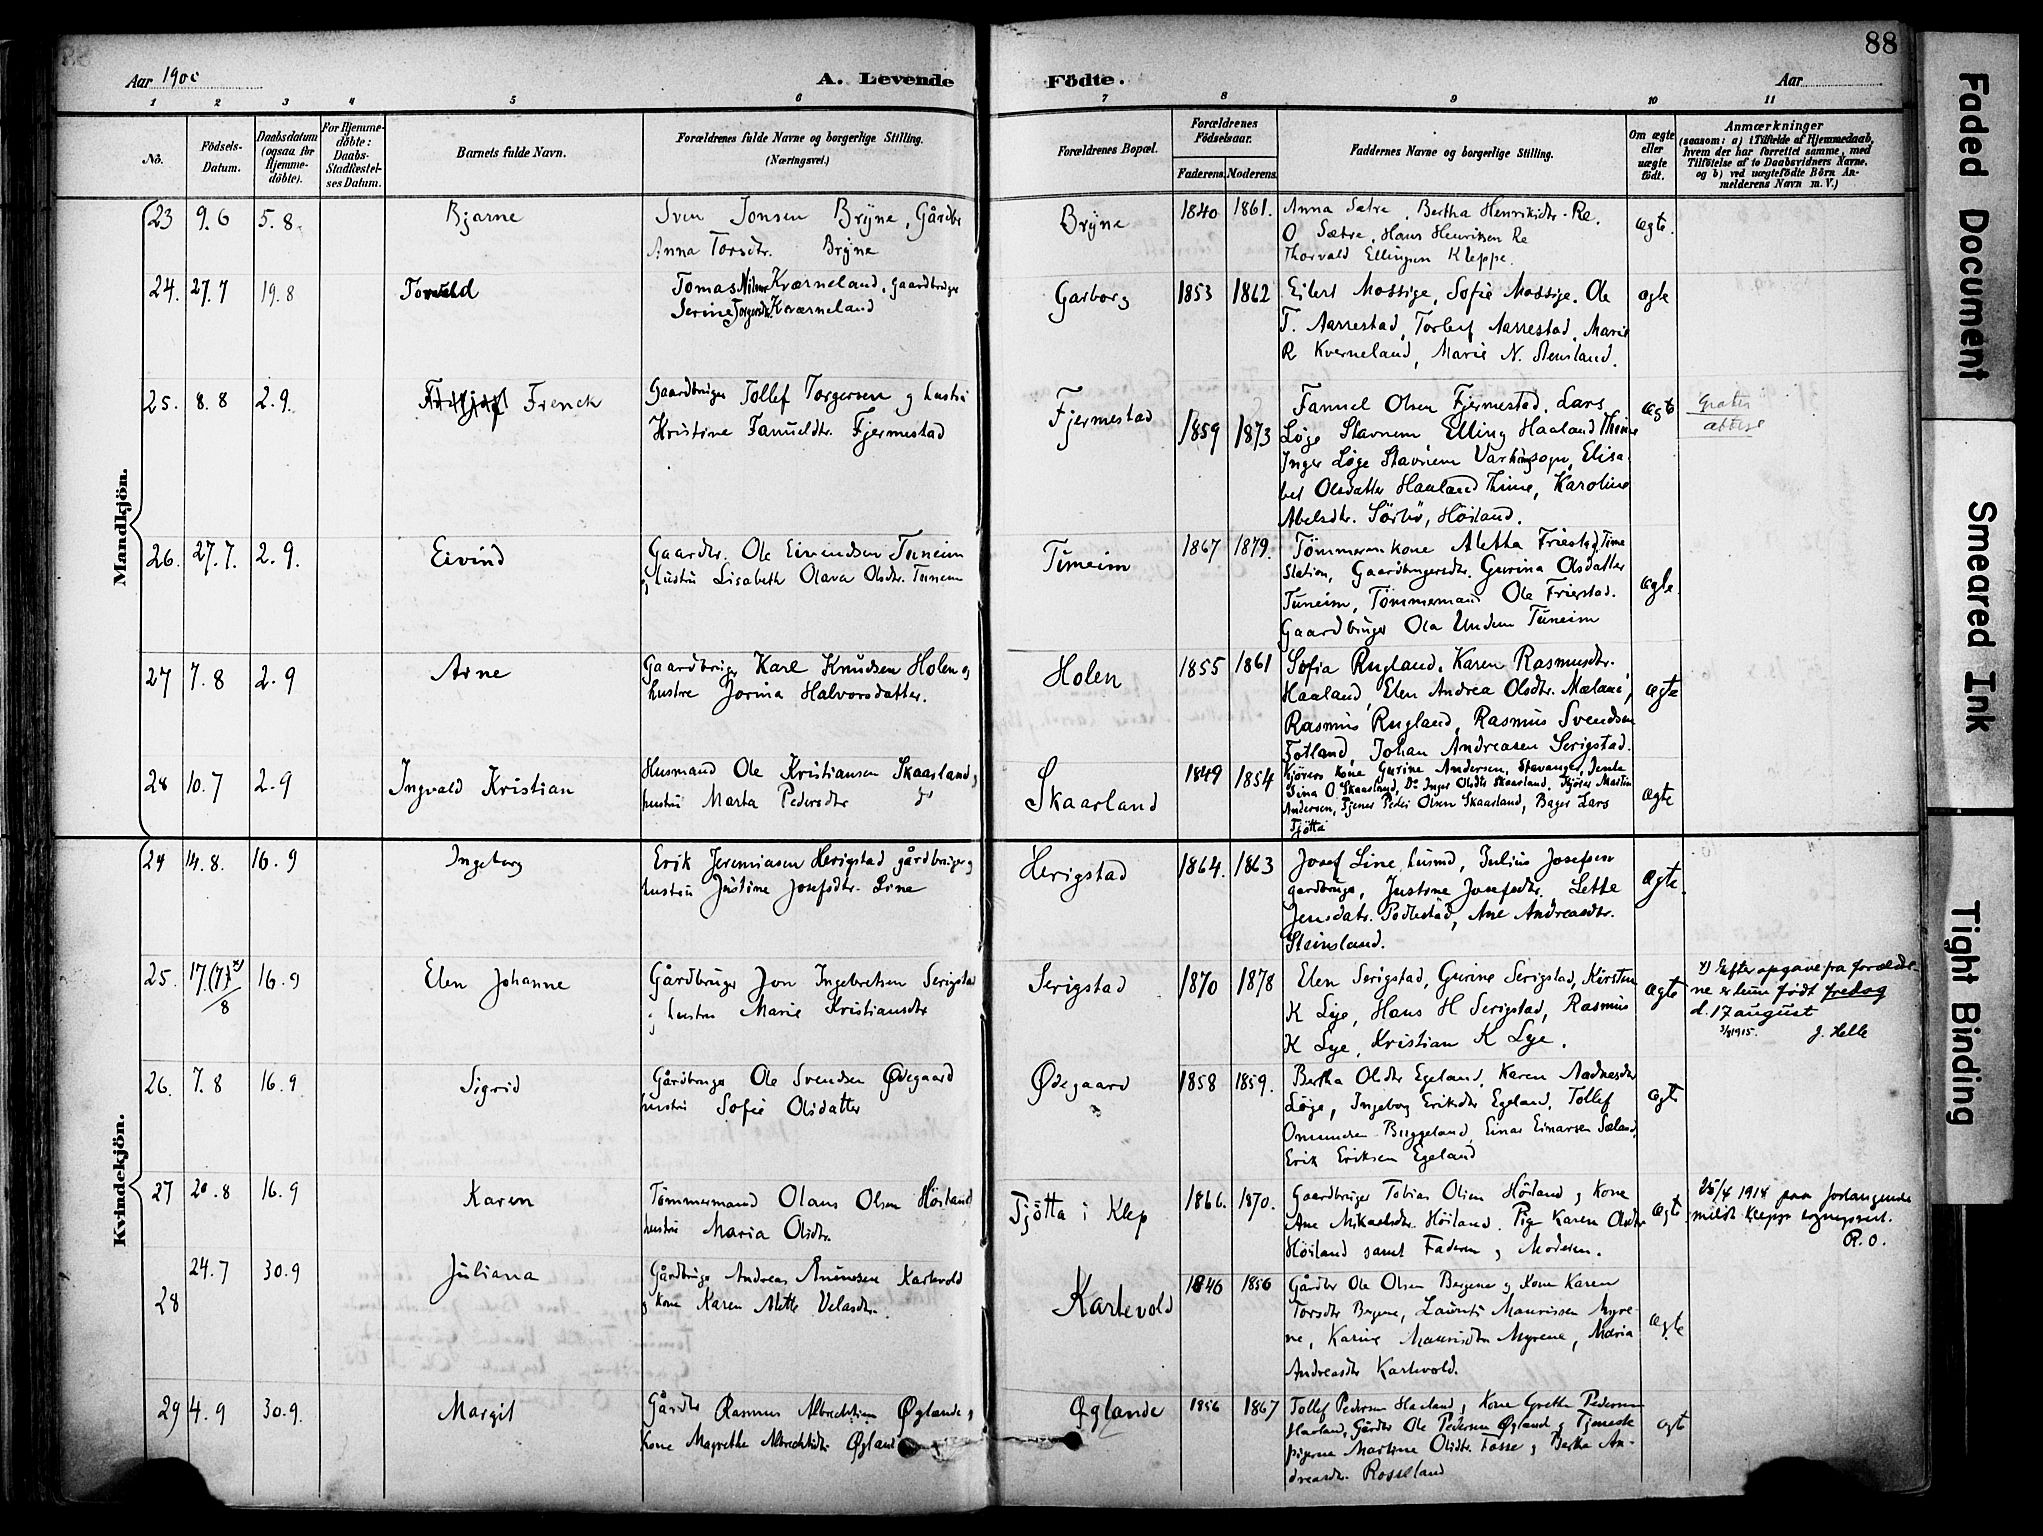 88
Aar 1900
A. Levende
Födte.
Aar
1 2 3 4 5 6 7 8 9 10 11
No.
Födsels-
Datum.
Daabsdatum
(ogsaa for
Hjemme-
döbte).
For Hjemme-
döbte:
Daabs-
Stadfæstel-
ses Datum.
Barnets fulde Navn.
Forældrenes fulde Navne og borgerlige Stilling.
(Næringsvei.)
Forældrenes Bopæl.
Forældrenes
Födselsaar.
Faderens. Moderens.
Faddernes Navne og borgerlige Stilling.
Om ægte
eller
uægte
födt.
Anmærkninger
(saasom: a) i Tilfælde af Hjemmedaab,
hvem der har forrettet samme, med
Tilföielse af to Daabsvidners Navne,
og b) ved uægtefödte Börn An-
melderens Navn m. V.)
Mandkjön.
23 9.6 5.8. Bjarne
Sven Jonsen Bryne, Gårdbr
Anna Torsdtr. Bryne
Bryne 1840 1861.
Anna Sætre, Bertha Henriksdtr. Re.
O Sætre, Hans Henriksen Re
Thorvald Ellingsen Kleppe.
ægte.
24. 27.7 19.8 Torvald
Tomas Nilsen Kværneland, Gaardbruger
Serine Torgersdtr. Kværneland
Garborg 1853 1862
Eilert Mossige, Sofie Mossige. Ole
T. Aarrestad, Torleif Aarrestad, Marie
R Kverneland, Marie N. Stensland.
ægte
25. 8.8 2.9. Frenck
Gaardbruger Tollef Torgersen og hustru
Kristine Fanueldtr. Fjermestad
Fjermestad 1859 1873
Fanuel Olsen Fjermestad. Lars
Løge Stavnem, Elling Haaland Thime
Inger Løge Stavnem Varhaugsogn, Elisa-
bet Olsdatter Haaland Thime, Karoline
Abelsdtr. Sörbö, Höiland.
ægte
Gratis
attest
26. 27.7. 2.9. Eivind
Gaardbr. Ole Eivindsen Tuneim
og hustru Lisabeth Olava Olsdtr. Tuneim
Tuneim 1867 1879.
Tømmerm kone Aletta Friestad, Time
Station, Gaardbrugersdtr. Gurina Olsdatter
Tuneim, Tömmermand Ole Friestad.
Gaardbruger Ola Undem Tuneim
ægte.
27 7.8 2.9 Arne
Gaardbruger Karl Knudsen Holen og
hustru Jorina Halvorsdatter.
Holen 1855 1861
Sofia Rugland, Karen Rasmusdtr.
Haaland, Elen Andrea Olsdtr. Mæland,
Rasmus Rugland, Rasmus Svendsen
Fotland, Johan Andreasen Serigstad.
ægte
28 10.7 2.9 Ingvald Kristian
Husmand Ole Kristiansen Skaarland,
hustru Marta Pedersdtr do
Skaarland 1849 1854
Kjörers kone Gurine Andersen, Stavanger, Jente
Sina O Skaarland, Do Inger Olsdtr Skaarland, Kjörer Martin
Andersen, Tjener Peder Olsen Skaarland, Bager Lars
Tjötta
ægte
Kvindekjön.
24 14.8. 16.9 Ingeborg
Erik Jeremiasen Herigstad gårdbruger og
hustru Justine Josefsdtr. Line
Herigstad 1864. 1863
Josef Line husmd, Julius Josefsen
gårdbruger, Justine Josefsdtr. Lette
Jensdatr. Podlestad, Ane Andreasdtr.
Steinsland.
ægte.
25. 17(7)x)/8 16.9 Elen Johanne
Gårdbruger Jon Ingebretsen Serigstad
og hustru Marie Kristiansdtr
Serigstad 1870 1878
Elen Serigstad, Gurine Serigstad, Kirsten
K Lye, Hans H Serigstad, Rasmus
K Lye, Kristian K Lye.
ægte
x) Efter opgave fra forældre-
ne er hun født fredag
d. 17 august
3/9 1915. J. Helle
26. 7.8 16.9 Sigrid
Gårdbruger Ole Svendsen Ødegaard
hustru Sofie Olsdatter
Ødegaard 1858 1859.
Bertha Olsdtr Egeland, Karen Aadnesdtr
Løge, Ingeborg Eriksdtr Egeland, Tollef
Omundsen Buggeland, Einar Einarsen Sæland,
Erik Eriksen Egeland
ægte
27 20.8 16.9 Karen
Tömmermand Olaus Olsen Höiland
hustru Maria Olsdtr.
Tjötta i Klep 1866. 1870.
Gaardbruger Tobias Olsen Höiland og Kone
Ane Mikaelsdtr. Höiland. Pige Karen Olsdtr
Höiland samt Faderen og Moderen.
ægte
25/4 1918 paa forlangende
meldt Klepp sogneprest.
R.O.
28 24.7 30.9 Juliana
Gårdbruger Andreas Ånensen Kartevold
og kone Karen Mette Velasdtr.
Kartevold 1846 1856
Gårdbr Ole Olsen Bryne og Kone Karen
Torsdtr Bryne, Laurits Mauritsen Myre-
ne, Karine Mauritsdtr Myrene, Maria
Andreasdtr Kartevold.
ægte
29 4.9 30.9. Margit
Gårdbr Rasmus Albrechtsen Øglænde og
Kone Magrethe Albrechtsdtr Øgland
Øglande 1856 1867
Tollef Pedersen Haaland og Kone Grethe Pedersen
Haaland, Gårdbr Ole Pedersen Øgland og Tjeneste
pigerne Martine Olsdtr. Fosse og Bertha An-
dreasdtr. Rosseland
ægte
Faded Document
Smeared Ink
Tight Binding